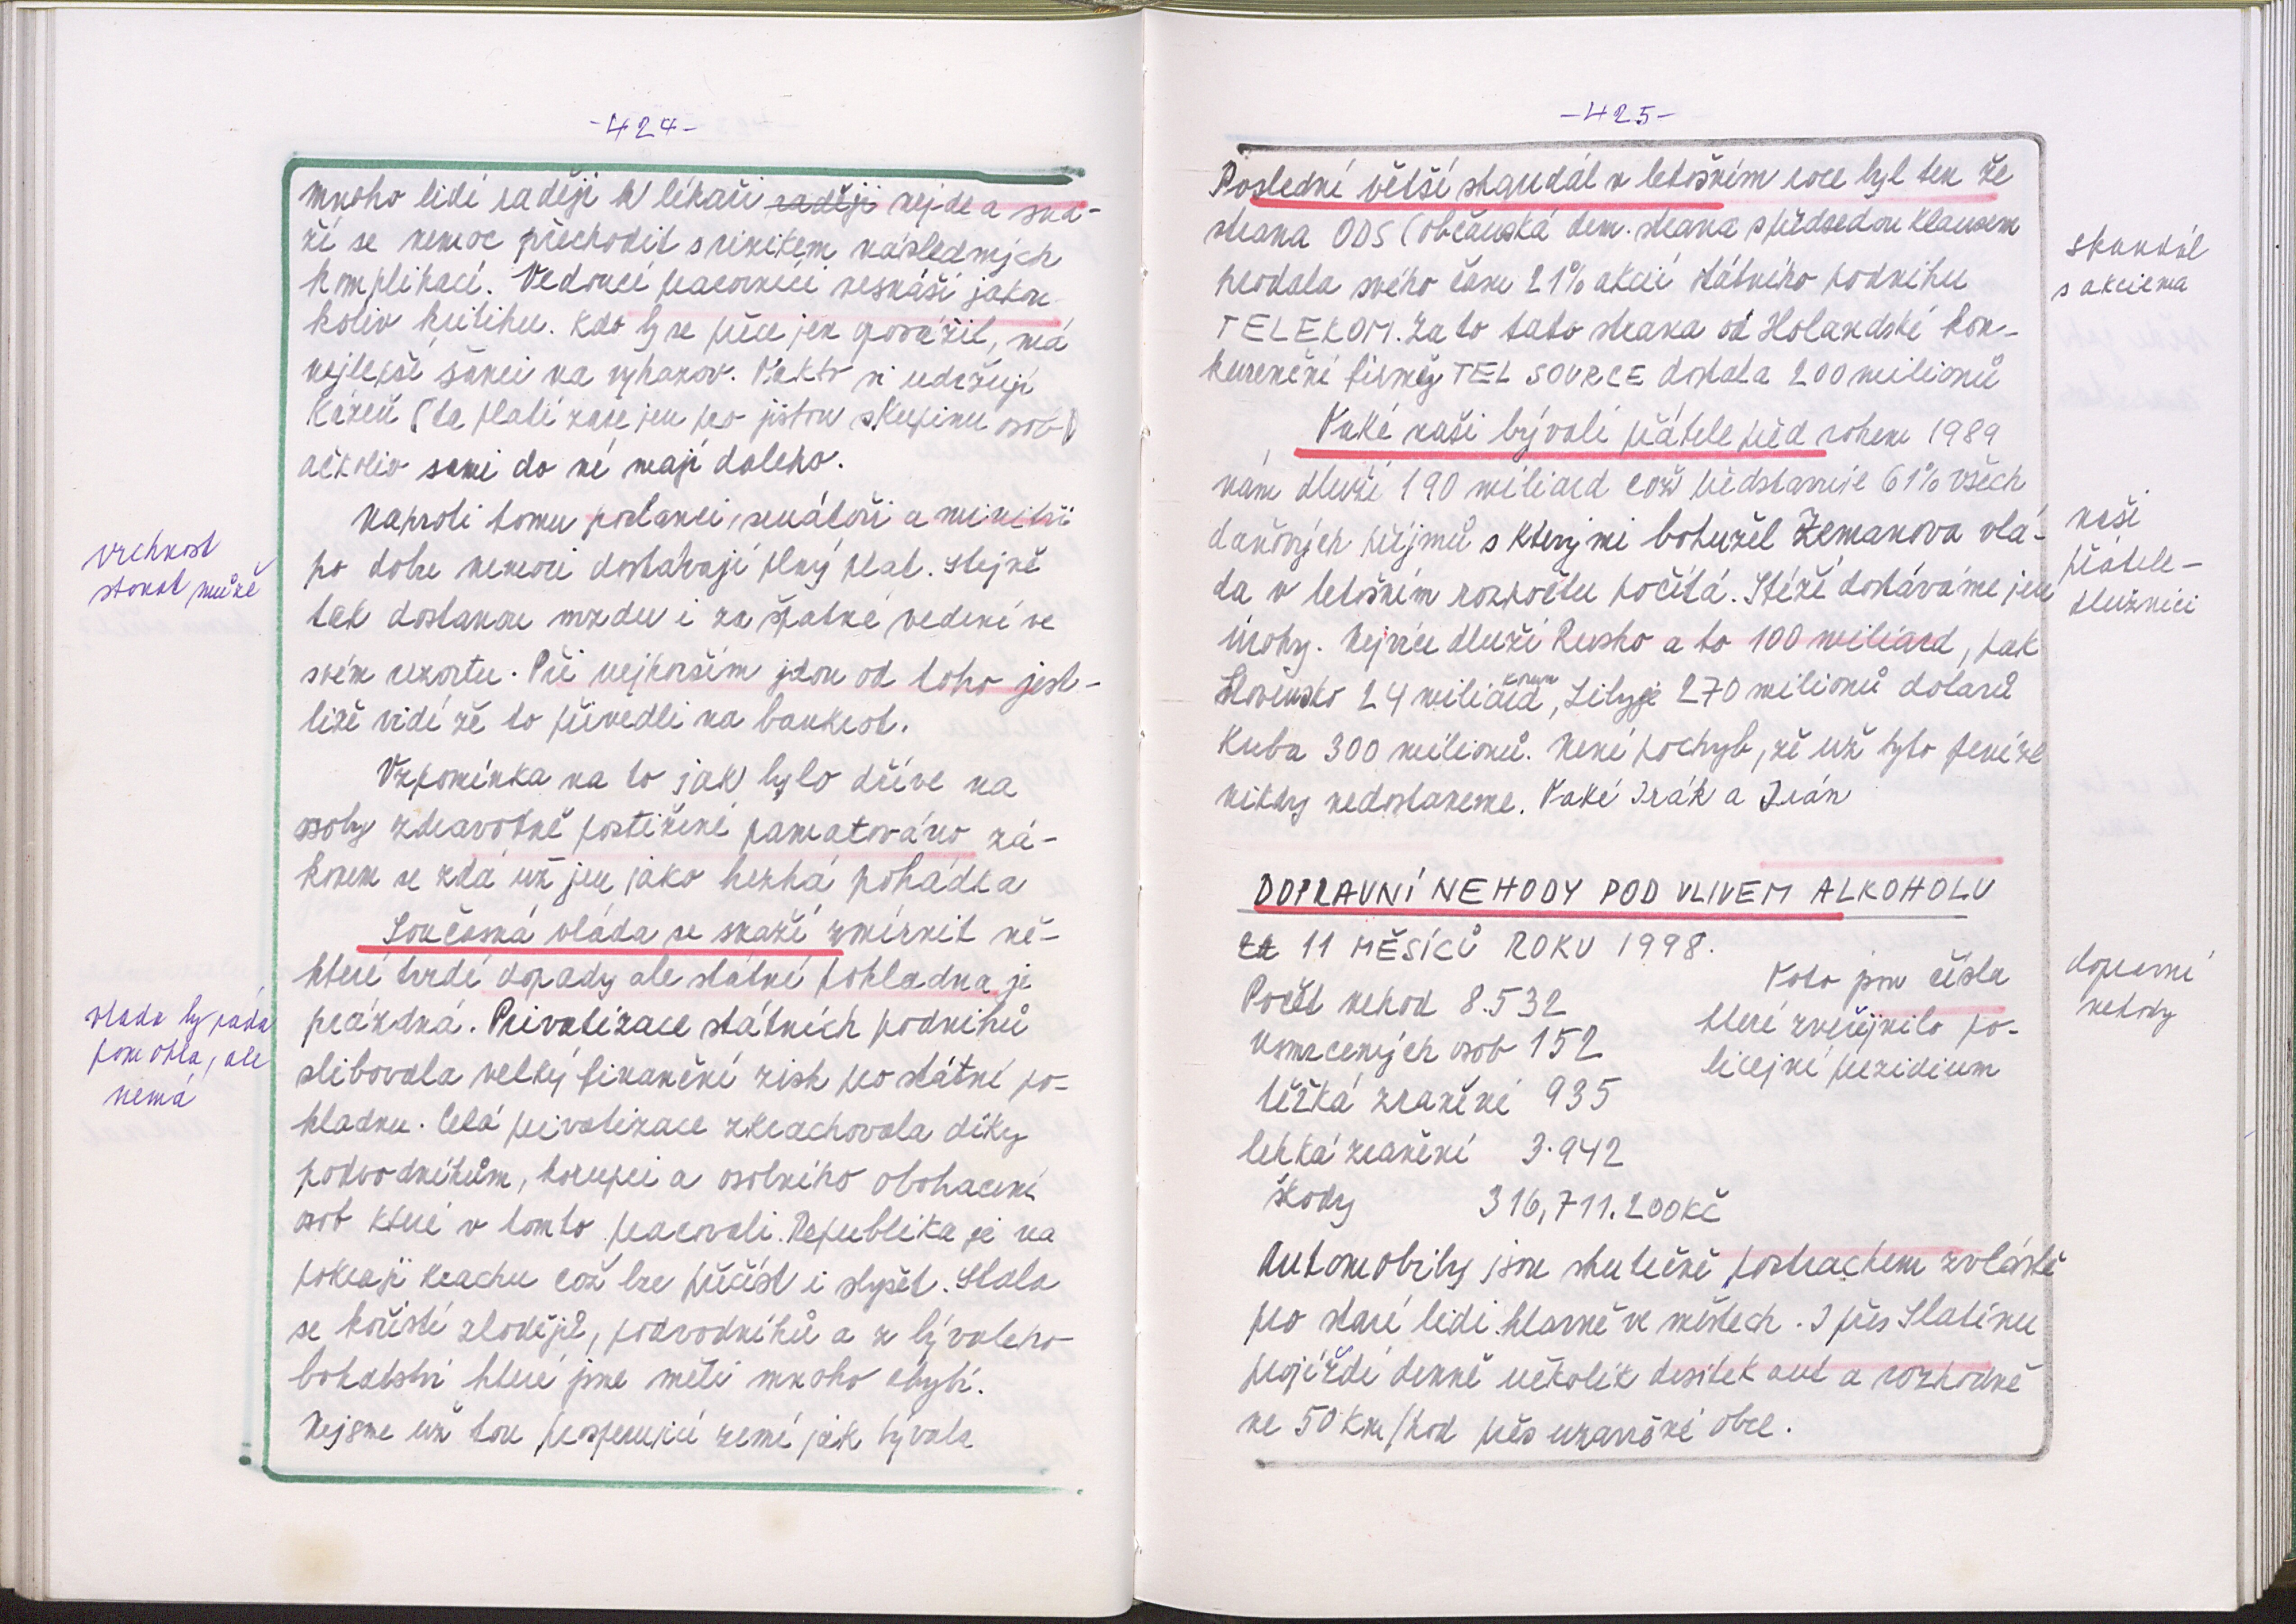 -424-
mnoho lidí raději k lékaři raději nejde a sna-
ží se nemoc přechodit s rizikem následných
komplikací. Vedoucí pracovníci nesnáší jakou
koliv kritiku. Kdo by se přece jen opovážil, má
nejlepší šanci na vyhazov. Takto si udržují
kázeň (ta platí zase jen pro jistou skupinu osob)
ačkoliv sami do ní mají daleko.
Naproti tomu poslanci, senátoři a ministři
po dobu nemoci dostávají plný plat. Stejně
tak dostanou mzdu i za špatné vedení ve
svém rezortu. Při nejhorším jdou od toho jest-
liže vidí že to přivedli na bankrot.
Vzpomínka na to jak bylo dříve na
osoby zdravotně postižené pamatováno zá-
konem se zdá už jen jako hezká pohádka
Současná vláda se snaží zmírnit ně-
které tvrdé dopady ale státní pokladna je
prázdná. Privatizace státních podniků
slibovala velký finanční zisk pro státní po-
kladnu. Celá privatizace zkrachovala díky
podvodníkům, korupci a osobního obohacení
osob které v tomto pracovali. Republika je na
pokraji krachu což lze přečíst i slyšet. Stala
se kořistí zlodějů, podvodníků a z bývalého
bohatství které jsme měli mnoho chybí.
Nejsme už tou prosperující zemí jak bývala
vrchnost
stonat může
vláda by ráda
pomohla, ale
nemá
-425-
Poslední větší skandál v letošním roce byl ten že
strana ODS (občanská dem. strana s předsedou Klausem
prodala svého času 21% akcií státního podniku
TELEKOM. Za to tato strana od Holandské kon-
kurenční firmy TEL SOURCE dostala 200 milionů
Také naši bývalí přátele před rokem 1989
nám dluží 190 miliard což představuje 61% všech
daňových příjmů s kterými bohužel Zemanova vlá-
da v letošním rozpočtu počítá. Stěží dostáváme jen
úroky. Nejvíce dluží Rusko a to 100 miliard, pak
Slovensko 24 miliard korun, Libye 270 milionů dolarů
Kuba 300 milionů. Není pochyb, že už tyto peníze
nikdy nedostaneme. Také Irák a Irán
DOPRAVNÍ NEHODY POD VLIVEM ALKOHOLU
za 11 MĚSÍCŮ ROKU 1998.
Počet nehod 8.532
Usmrcených osob 152
těžká zranění 935
lehká zranění 3.942
škody 316,711.200 Kč
Toto jsou čísla
které zveřejnilo po-
licejní prezidium
Automobily jsou skutečně postrachem zvláště
pro staré lidi hlavně ve městech. I přes Slatinu
projíždí denně několik desítek aut a rozhodně
ne 50 km/hod přes uzavřené obce.
skandál
s akciema
naši
přátele-
dlužníci
dopravní
nehody